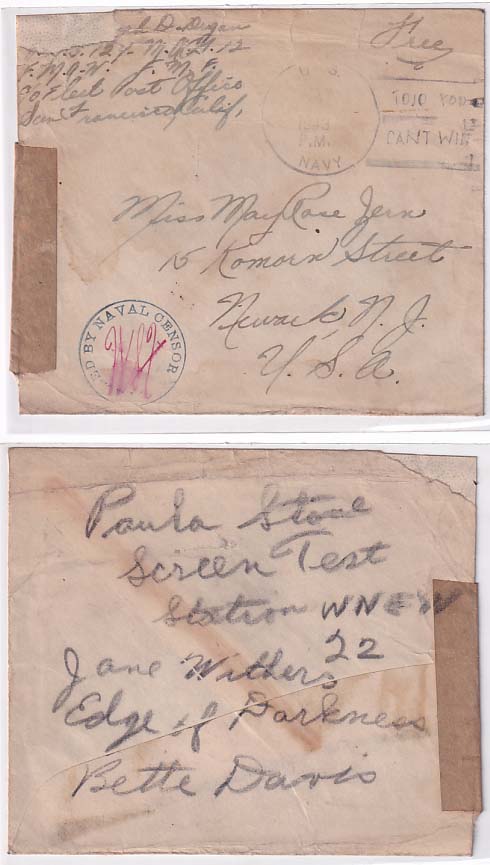 D. Degan
Free
F.M.A.W. F.M.F.
c/o Fleet Post Office
San Francisco, Calif.
U.S.
P.M.
NAVY
TOJO YOU
CAN'T WIN
Miss May Rose Jern
15 Komorn Street
Newark N. J.
U. S. A.
ED BY NAVAL CENSOR
Paula Stone
Screen Test
Station WNEW
22
Jane Withers
Edge of Darkness
Bette Davis